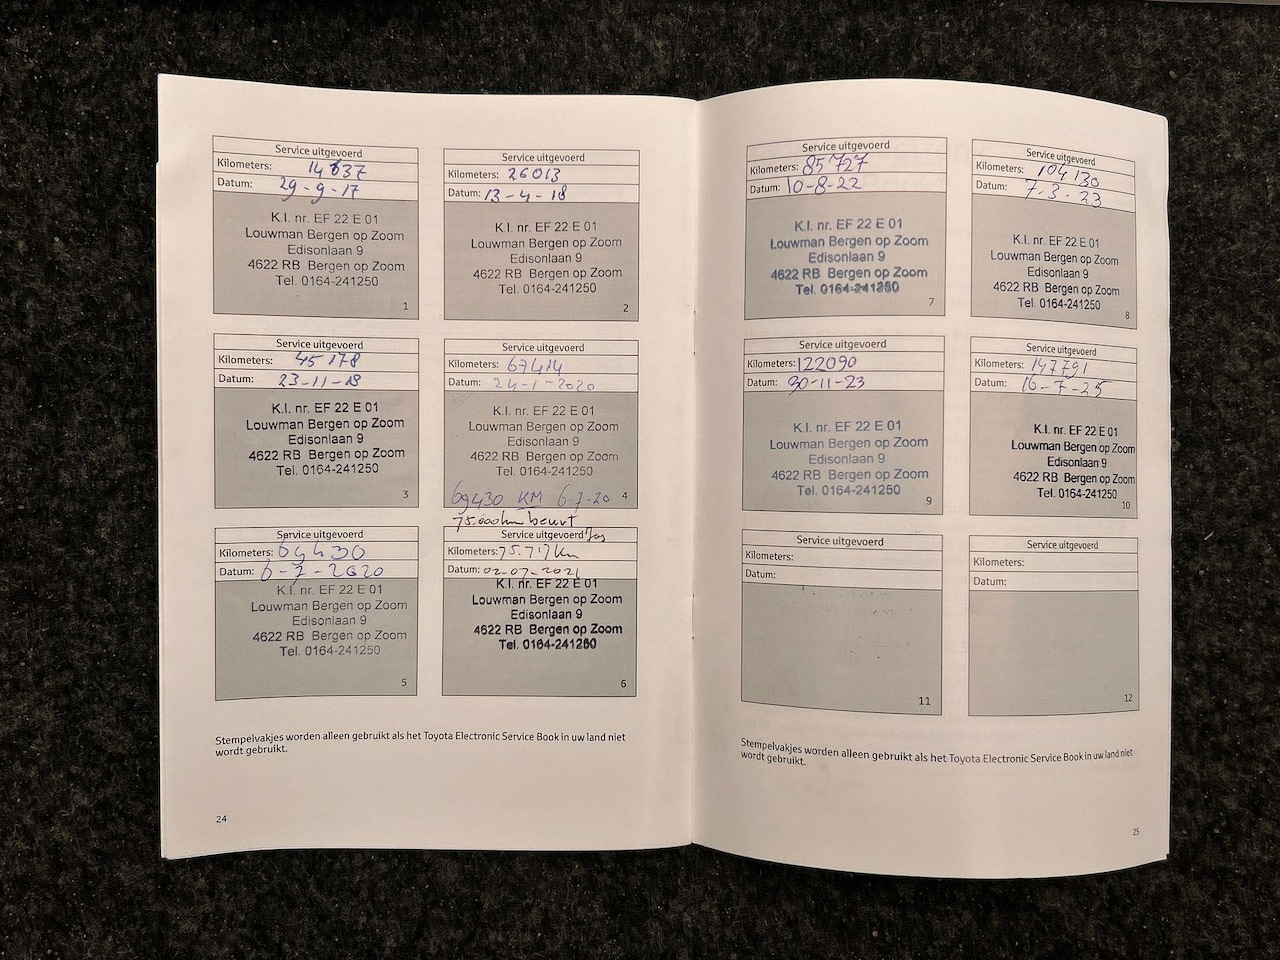 Service uitgevoerd
Kilometers: 14637
Datum: 29-9-17
K.I. nr. EF 22 E 01
Louwman Bergen op Zoom
Edisonlaan 9
4622 RB Bergen op Zoom
Tel. 0164-241250
1
Service uitgevoerd
Kilometers: 26013
Datum: 13-4-18
K.I. nr. EF 22 E 01
Louwman Bergen op Zoom
Edisonlaan 9
4622 RB Bergen op Zoom
Tel. 0164-241250
2
Service uitgevoerd
Kilometers: 45178
Datum: 23-11-18
K.I. nr. EF 22 E 01
Louwman Bergen op Zoom
Edisonlaan 9
4622 RB Bergen op Zoom
Tel. 0164-241250
3
Service uitgevoerd
Kilometers: 67414
Datum: 24-1-2020
K.I. nr. EF 22 E 01
Louwman Bergen op Zoom
Edisonlaan 9
4622 RB Bergen op Zoom
Tel. 0164-241250
69430 KM 6-7-20
4
Service uitgevoerd
Kilometers: 69430
Datum: 6-7-2020
K.I. nr. EF 22 E 01
Louwman Bergen op Zoom
Edisonlaan 9
4622 RB Bergen op Zoom
Tel. 0164-241250
5
75.000km beurt
Service uitgevoerd
Kilometers: km
Datum: 02-07-2021
K.I. nr. EF 22 E 01
Louwman Bergen op Zoom
Edisonlaan 9
4622 RB Bergen op Zoom
Tel. 0164-241250
6
Stempelvakjes worden alleen gebruikt als het Toyota Electronic Service Book in uw land niet
wordt gebruikt.
24
Service uitgevoerd
Kilometers: 85727
Datum: 10-8-22
K.I. nr. EF 22 E 01
Louwman Bergen op Zoom
Edisonlaan 9
4622 RB Bergen op Zoom
Tel. 0164-241250
7
Service uitgevoerd
Kilometers: 104130
Datum: 7-3-23
K.I. nr. EF 22 E 01
Louwman Bergen op Zoom
Edisonlaan 9
4622 RB Bergen op Zoom
Tel. 0164-241250
8
Service uitgevoerd
Kilometers: 122090
Datum: 30-11-23
K.I. nr. EF 22 E 01
Louwman Bergen op Zoom
Edisonlaan 9
4622 RB Bergen op Zoom
Tel. 0164-241250
9
Service uitgevoerd
Kilometers: 147791
Datum: 16-7-25
K.I. nr. EF 22 E 01
Louwman Bergen op Zoom
Edisonlaan 9
4622 RB Bergen op Zoom
Tel. 0164-241250
10
Service uitgevoerd
Kilometers:
Datum:
11
Service uitgevoerd
Kilometers:
Datum:
12
Stempelvakjes worden alleen gebruikt als het Toyota Electronic Service Book in uw land niet
wordt gebruikt.
25